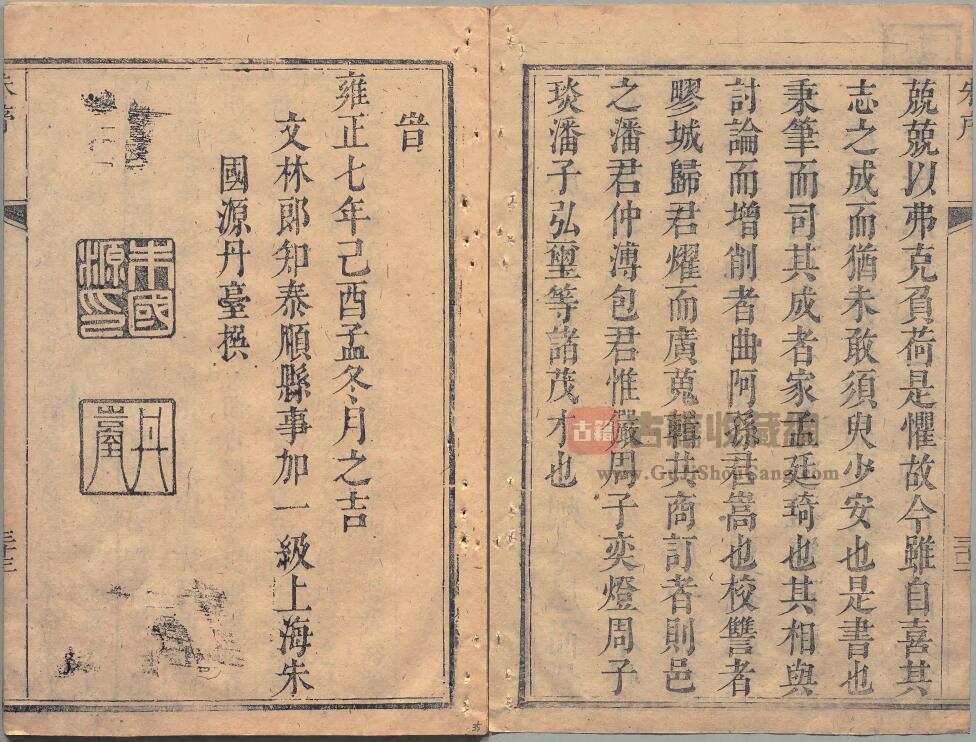 兢兢以弗克負荷是懼故今雖自喜其
志之成而猶未敢須臾少安也是書也
秉筆而司其成者家孟廷琦也其相與
討論而增削者曲阿孫君嵩也校讐者
膠城歸君燿而廣蒐輯共商訂者則邑
之潘君仲溥包君惟嚴周子奕燈周子
琰潘子弘璽等諸茂才也
古籍收藏網
www.GuJiShouCang.com
三十二
旹
雍正七年己酉孟冬月之吉
文林郎知泰順縣事加一級上海朱
國源丹臺撰
朱國源印
丹臺
三十三